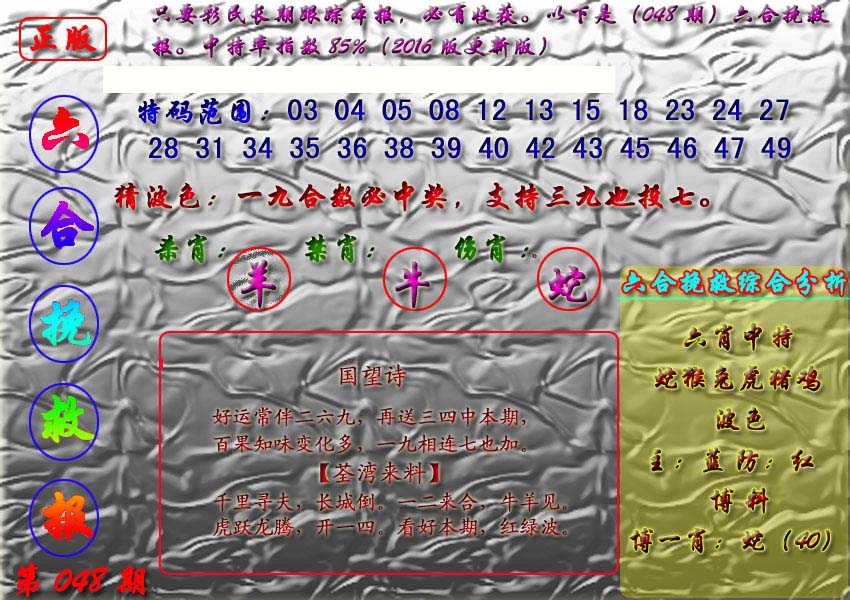 正版
只要彩民长期跟踪本报，必有收获。以下是（048期）六合挽救
报。中特率指数85%（2016版更新版）
特码范围：03 04 05 08 12 13 15 18 23 24 27
28 31 34 35 36 38 39 40 42 43 45 46 47 49
猜波色：一九合数必中奖，支持三九也投七。
杀肖：羊 禁肖：牛 伤肖：蛇
六合挽救报
第048期
国望诗
好运常伴二六九，再送三四中本期，
百果知味变化多，一九相连七也加。
【荃湾来料】
千里寻夫，长城倒。一二来合，牛羊见。
虎跃龙腾，开一四。看好本期，红绿波。
六合挽救综合分析
六肖中特
蛇猴兔虎猪鸡
波色
主：蓝防：红
博料
博一肖：蛇（40）